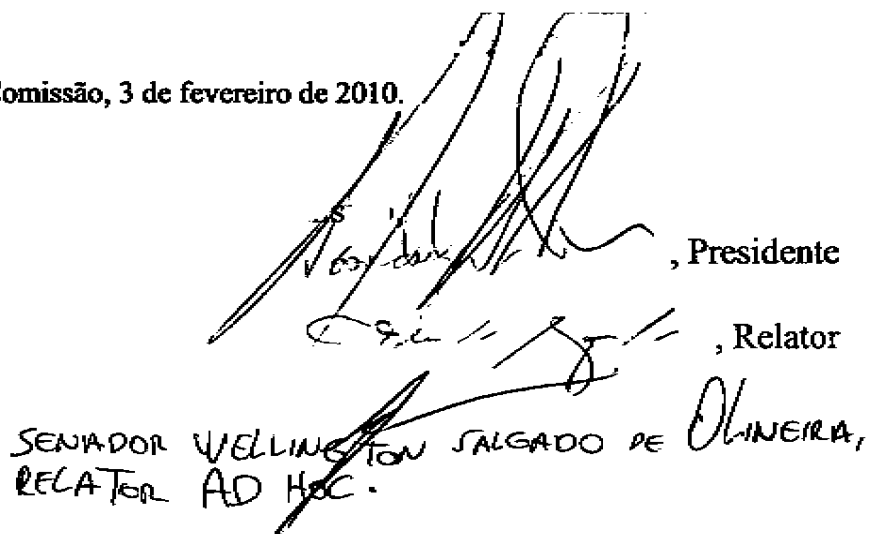 Comissão, 3 de fevereiro de 2010.
, Presidente
, Relator
SENADOR WELLINGTON SALGADO DE OLIVEIRA,
RELATOR AD HOC.